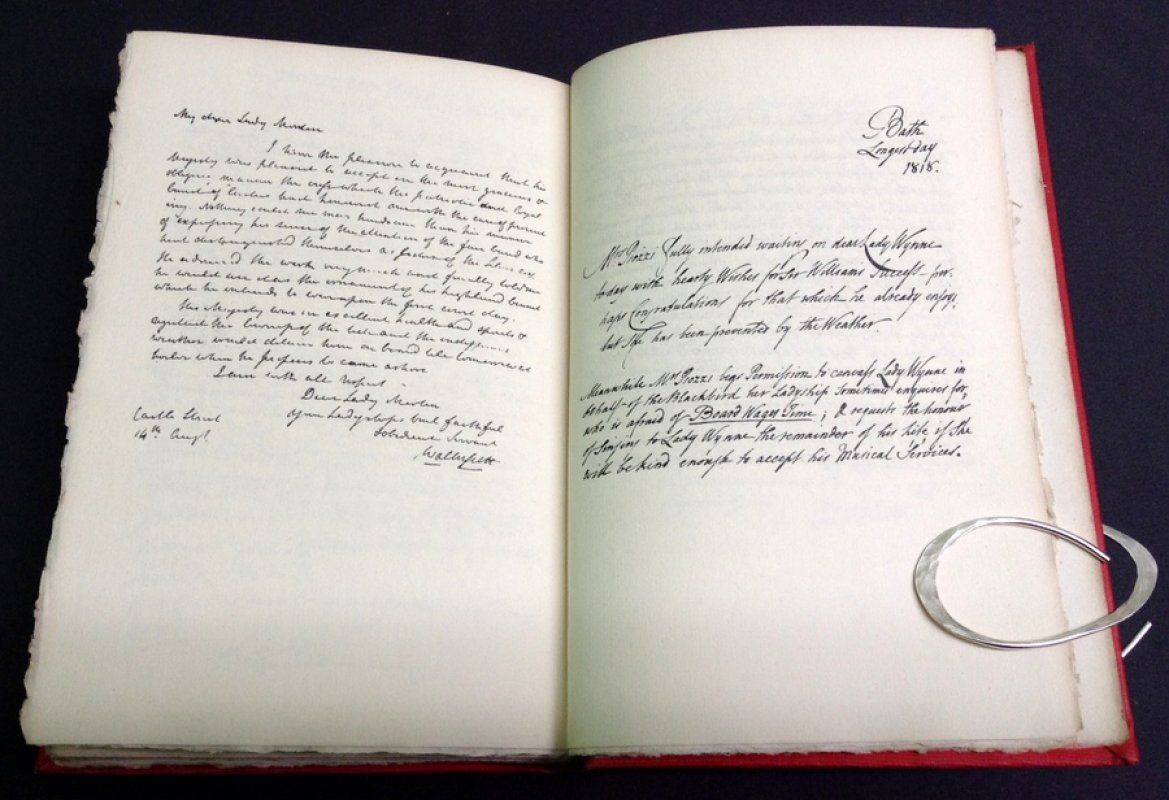 My dear Lady
I have the pleasure to acquaint that his
Majesty was pleased to accept in the most gracious &
obliging manner the the and loyal
band of Ladies had honourd me with the care of
ing. Nothing could be more handsome than his manner
of expressing his sense of the attention of the fair band who
had distinguished themselves as of the
He admired the work very much and finally told me
he would use it as the ornament of his highland bonnet
which he intends to wear upon the first court day.
His Majesty was in excellent health and spirits &
against the of the and the
weather would detain him on board till tomorrow at
when he proposes to come ashore
I am with all respect
Dear Lady
Your Ladyships but faithful
obedient Servant
Walter Scott
Castle Street
14th Augt.
Bath
Longest day
1818.
Mrs Piozzi fully intended waiting on dear Lady Wynne
to day with hearty Wishes for Sir Williams Success per-
haps Congratulations for that which he already enjoys,
but She has been prevented by the Weather.
Meanwhile Mrs Piozzi begs Permission to canvass Lady Wynne in
behalf of the Blackbird her Ladyship sometimes enquires for,
who is afraid of Board Wages Time; & requests the honour
of Singing to Lady Wynne the remainder of his Life if She
will be kind enough to accept his Musical Services.